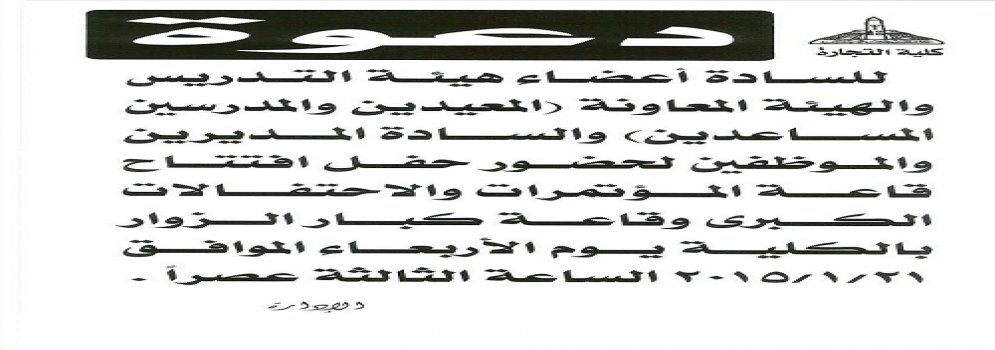 دعوة
كلية التجارة
للسادة أعضاء هيئة التدريس
والهيئة المعاونة (المعيدين والمدرسين
المساعدين) والسادة المديرين
والموظفين لحضور حفل افتتاح
قاعة المؤتمرات والاحتفالات
الكبرى وقاعة كبار الزوار
بالكلية يوم الأربعاء الموافق
٢٠١٥/١/٢١ الساعة الثالثة عصراً .
الإدارة